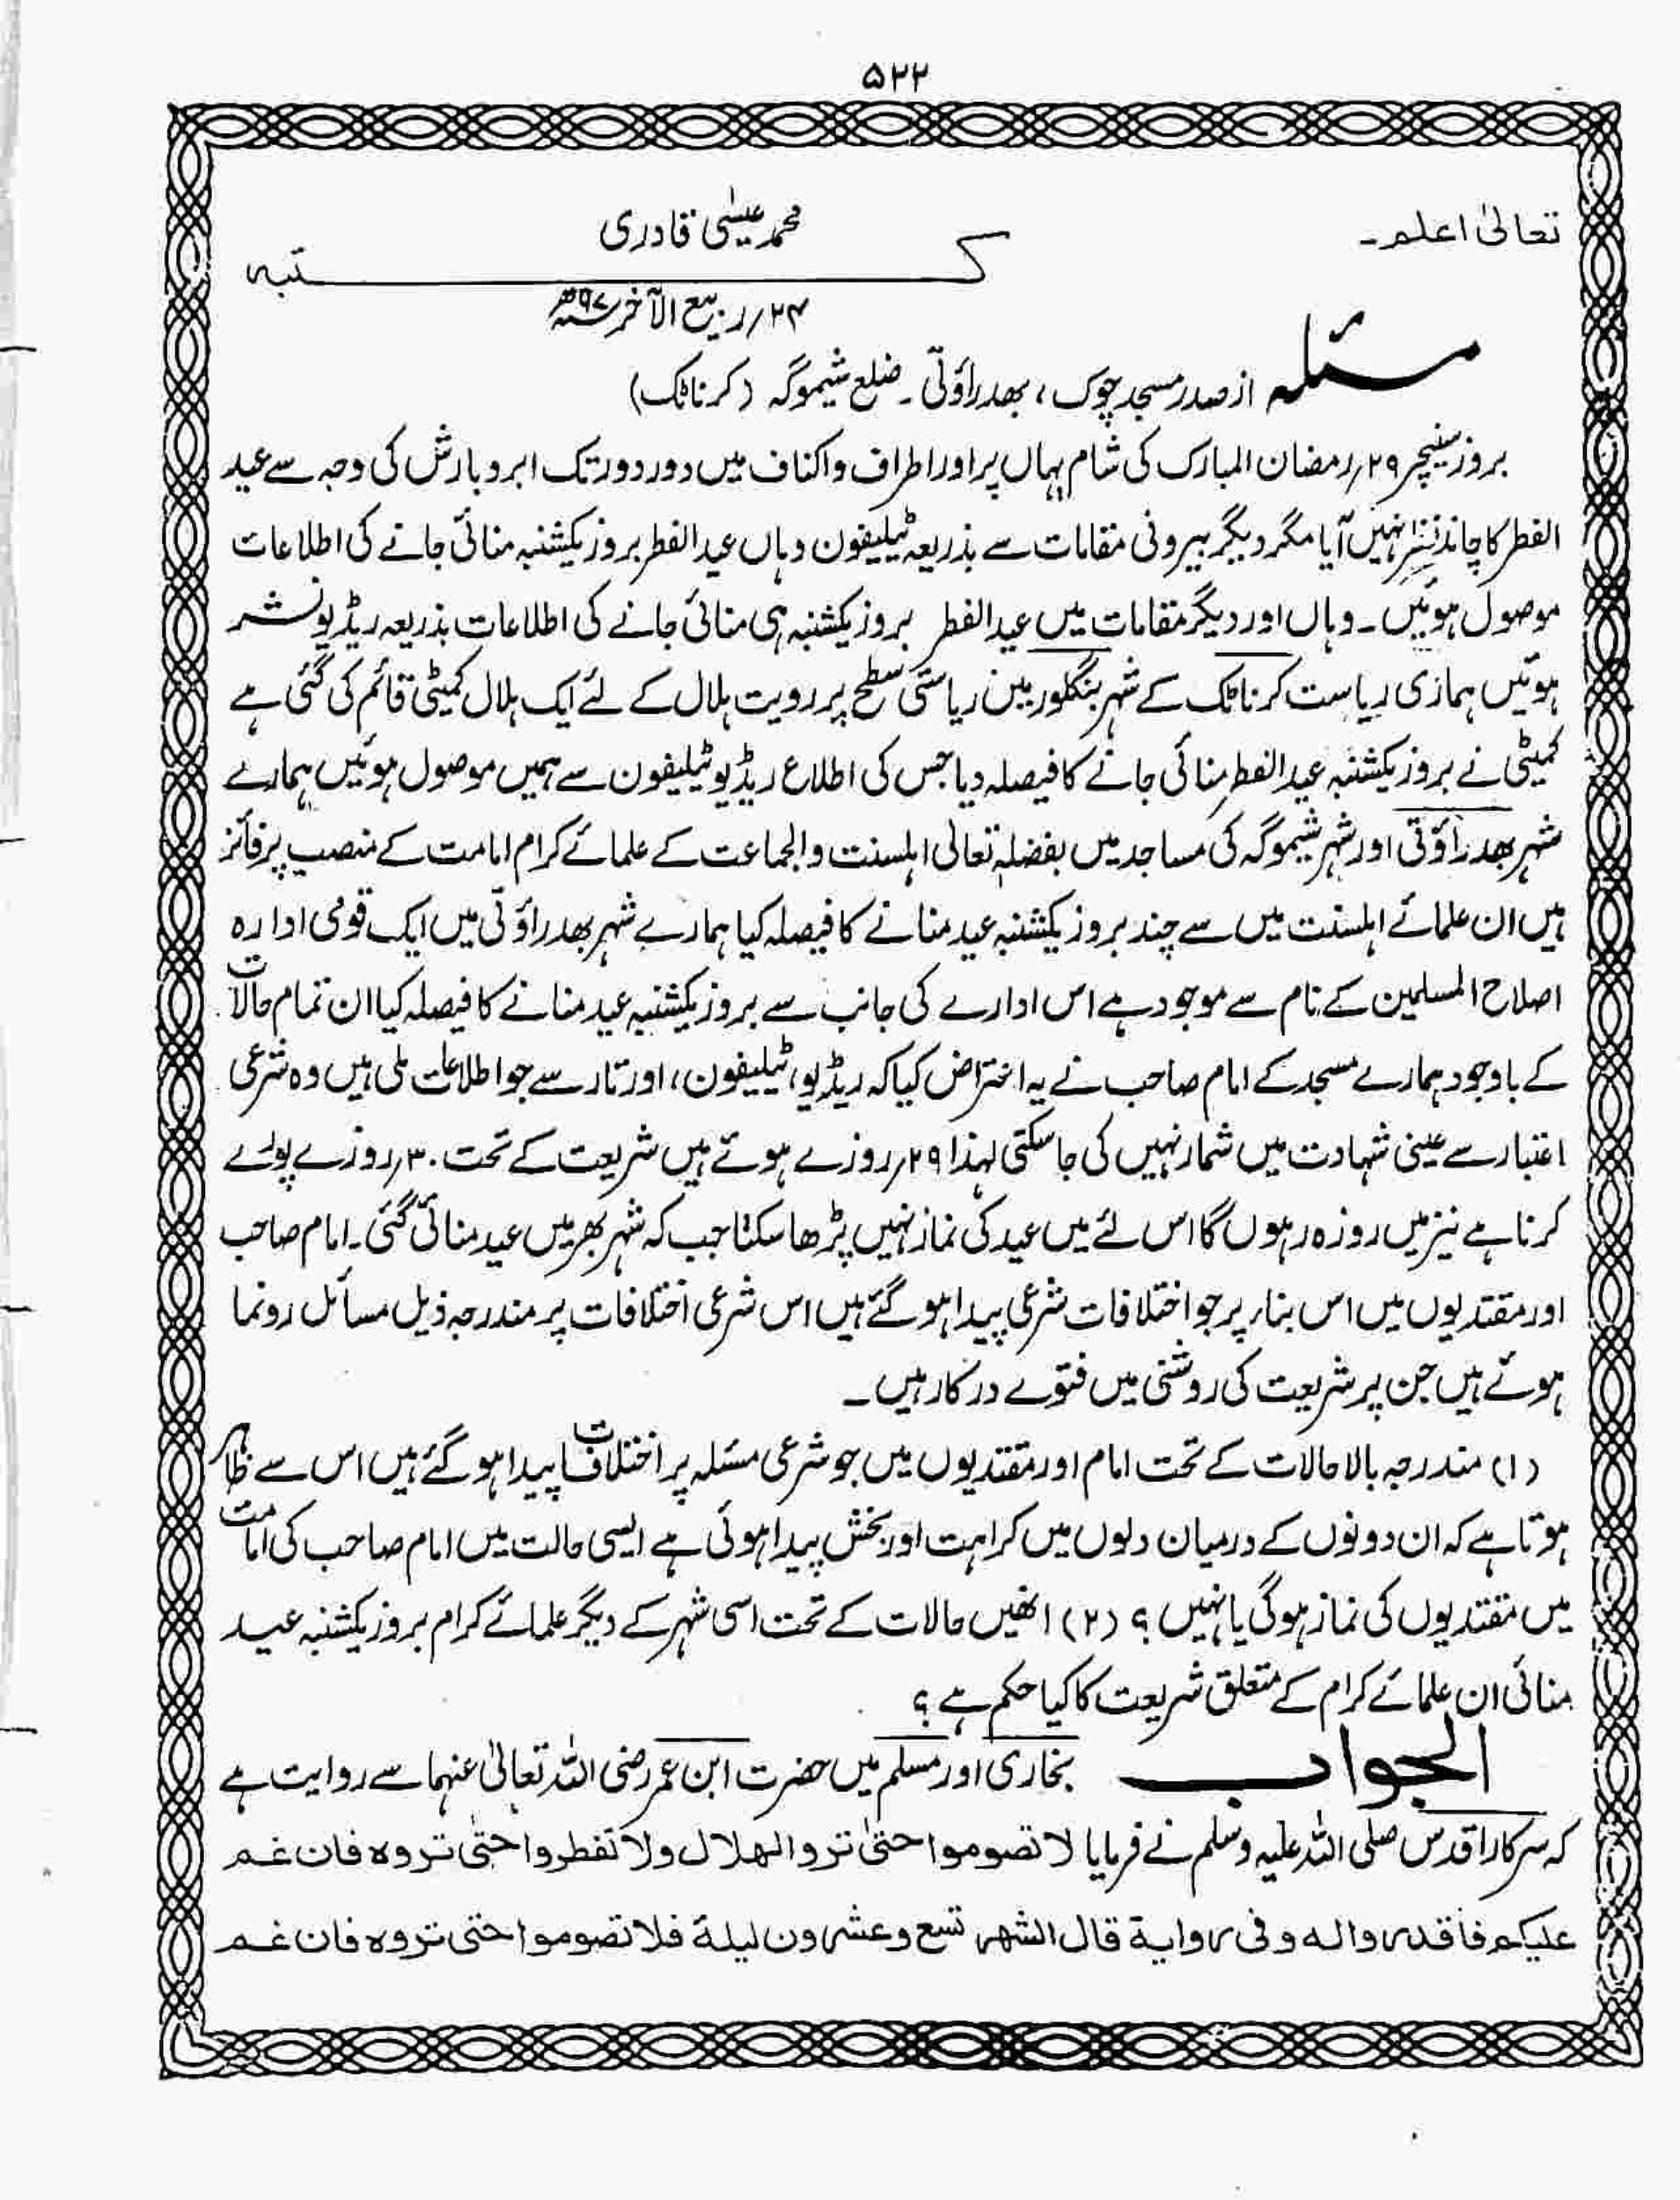 ۵۲۲
تعالیٰ اعلم۔
محمد عیسٰی قادری
کتبہ
۲۴؍ ربیع الآخر ۹۷ھ
مسئلہ از صدر مسجد چوک، بھدراؤتی۔ ضلع شیموگہ (کرناٹک)
بروز سنیچر ۲۹؍رمضان المبارک کی شام یہاں پر اور اطراف واکناف میں دور دور تک ابر وبارش کی وجہ سے عید
الفطر کا چاند نظر نہیں آیا مگر دیگر بیرونی مقامات سے بذریعہ ٹیلیفون وہاں عید الفطر بروز یکشنبہ منائی جانے کی اطلاعات
موصول ہوئیں۔ وہاں اور دیگر مقامات میں عید الفطر بروز یکشنبہ ہی منائی جانے کی اطلاعات بذریعہ ریڈیو نشر
ہوئیں ہماری ریاست کرناٹک کے شہر بنگلور میں ریاستی سطح پر رویت ہلال کے لئے ایک ہلال کمیٹی قائم کی گئی ہے
کمیٹی نے بروز یکشنبہ عید الفطر منائی جانے کا فیصلہ دیا جس کی اطلاع ریڈیو ٹیلیفون سے ہمیں موصول ہوئیں ہمارے
شہر بھدراؤتی اور شہر شیموگہ کی مساجد میں بفضلہٖ تعالیٰ اہلسنت والجماعت کے علمائے کرام امامت کے منصب پر فائز
ہیں ان علمائے اہلسنت میں سے چند بروز یکشنبہ عید منانے کا فیصلہ کیا ہمارے شہر بھدراؤتی میں ایک قومی ادارہ
اصلاح المسلمین کے نام سے موجود ہے اس ادارے کی جانب سے بروز یکشنبہ عید منانے کا فیصلہ کیا ان تمام حالات
کے باوجود ہمارے مسجد کے امام صاحب نے یہ اعتراض کیا کہ ریڈیو، ٹیلیفون، اور تار سے جو اطلاعات ملی ہیں وہ شرعی
اعتبار سے عینی شہادت میں شمار نہیں کی جا سکتی لہٰذا ۲۹؍روزے ہوئے ہیں شریعت کے تحت ۳۰؍روزے پورے
کرنا ہے نیز میں روزہ رہوں گا اس لئے میں عید کی نماز نہیں پڑھا سکتا جب کہ شہر بھر میں عید منائی گئی۔ امام صاحب
اور مقتدیوں میں اس بناء پر جو اختلافات شرعی پیدا ہو گئے ہیں اس شرعی اختلافات پر مندرجہ ذیل مسائل رونما
ہوئے ہیں جن پر شریعت کی روشنی میں فتوے درکار ہیں۔
(۱) مندرجہ بالا حالات کے تحت امام اور مقتدیوں میں جو شرعی مسئلہ پر اختلافات پیدا ہو گئے ہیں اس سے ظاہر
ہوتا ہے کہ ان دونوں کے درمیان دلوں میں کراہت اور بخش پیدا ہوئی ہے ایسی حالت میں امام صاحب کی امامت
میں مقتدیوں کی نماز ہوگی یا نہیں؟ (۲) انھیں حالات کے تحت اسی شہر کے دیگر علمائے کرام بروز یکشنبہ عید
منائی ان علمائے کرام کے متعلق شریعت کا کیا حکم ہے؟
الجواب بخاری اور مسلم میں حضرت ابن عمر رضی اللہ تعالیٰ عنہما سے روایت ہے
کہ سرکار اقدس صلی اللہ علیہ وسلم نے فرمایا لا تصوموا حتیٰ تروا الہلال ولا تفطروا حتیٰ تروہ فان غم
علیکم فاقدروا لہ وفی روایة قال الشھر تسع وعشرون لیلة فلا تصوموا حتی تروہ فان غم